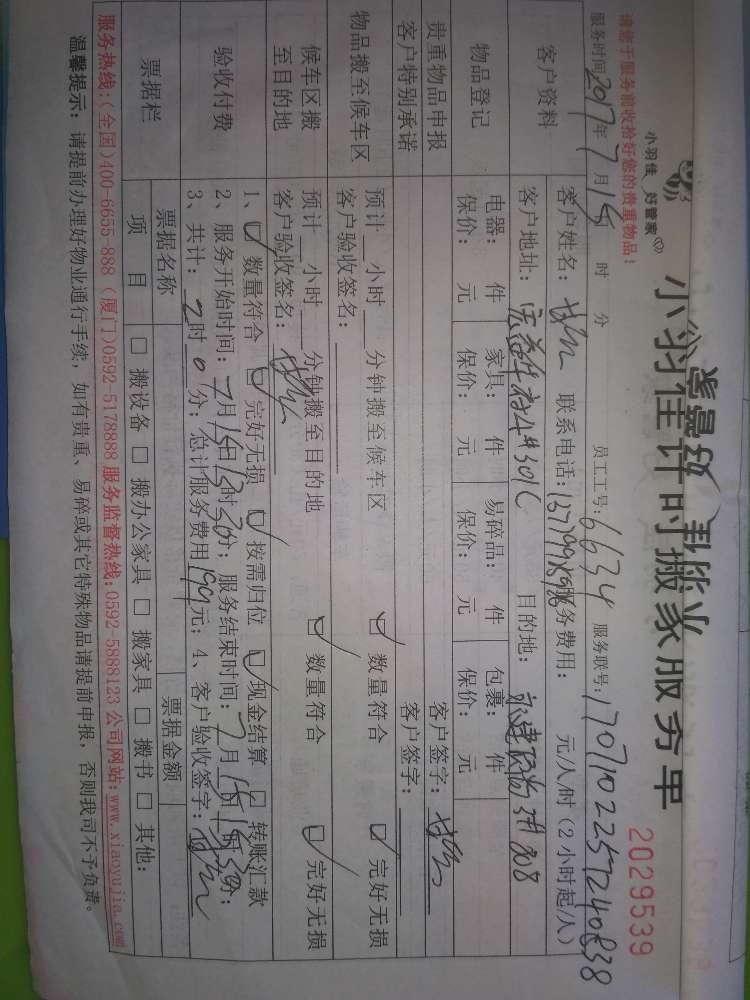 小羽佳 好管家
小羽佳计时搬家服务单
2029539
请您于服务前收拾好您的贵重物品!
服务时间 2017年7月15 时 分 员工工号: 6634 服务联号:
客户资料
客户姓名: 联系电话: 服务费用: 元/人/时(2小时起/人)
客户地址: 目的地:
物品登记
电器: 件 家具: 件 易碎品: 件 包裹: 件
保价: 元 保价: 元 保价: 元 保价: 元
贵重物品申报 客户签字:
客户特别承诺 客户签字:
物品搬至候车区
预计__小时__分钟搬至候车区 数量符合 完好无损
客户验收签名:
候车区搬至目的地
预计__小时__分钟搬至目的地 数量符合 完好无损
客户验收签名:
验收付费
1、数量符合 完好无损 按需归位 现金结算 转账汇款
2、服务开始时间: 7月15日13时30分; 服务结束时间: 7月15日15时30分;
3、共计: 2时0分; 总计服务费用199元; 4、客户验收签字:
票据栏
票据名称 票据金额
项 目 □ 搬设备 □ 搬办公家具 □ 搬家具 □ 搬书 □ 其他:
服务热线:(全国)400-6655-888 (厦门)0592-5178888 服务监督热线:0592-5888123 公司网站:www.xiaoyujia.com
温馨提示: 请提前办理好物业通行手续, 如有贵重、易碎或其它特殊物品请提前申报, 否则我司不予负责。